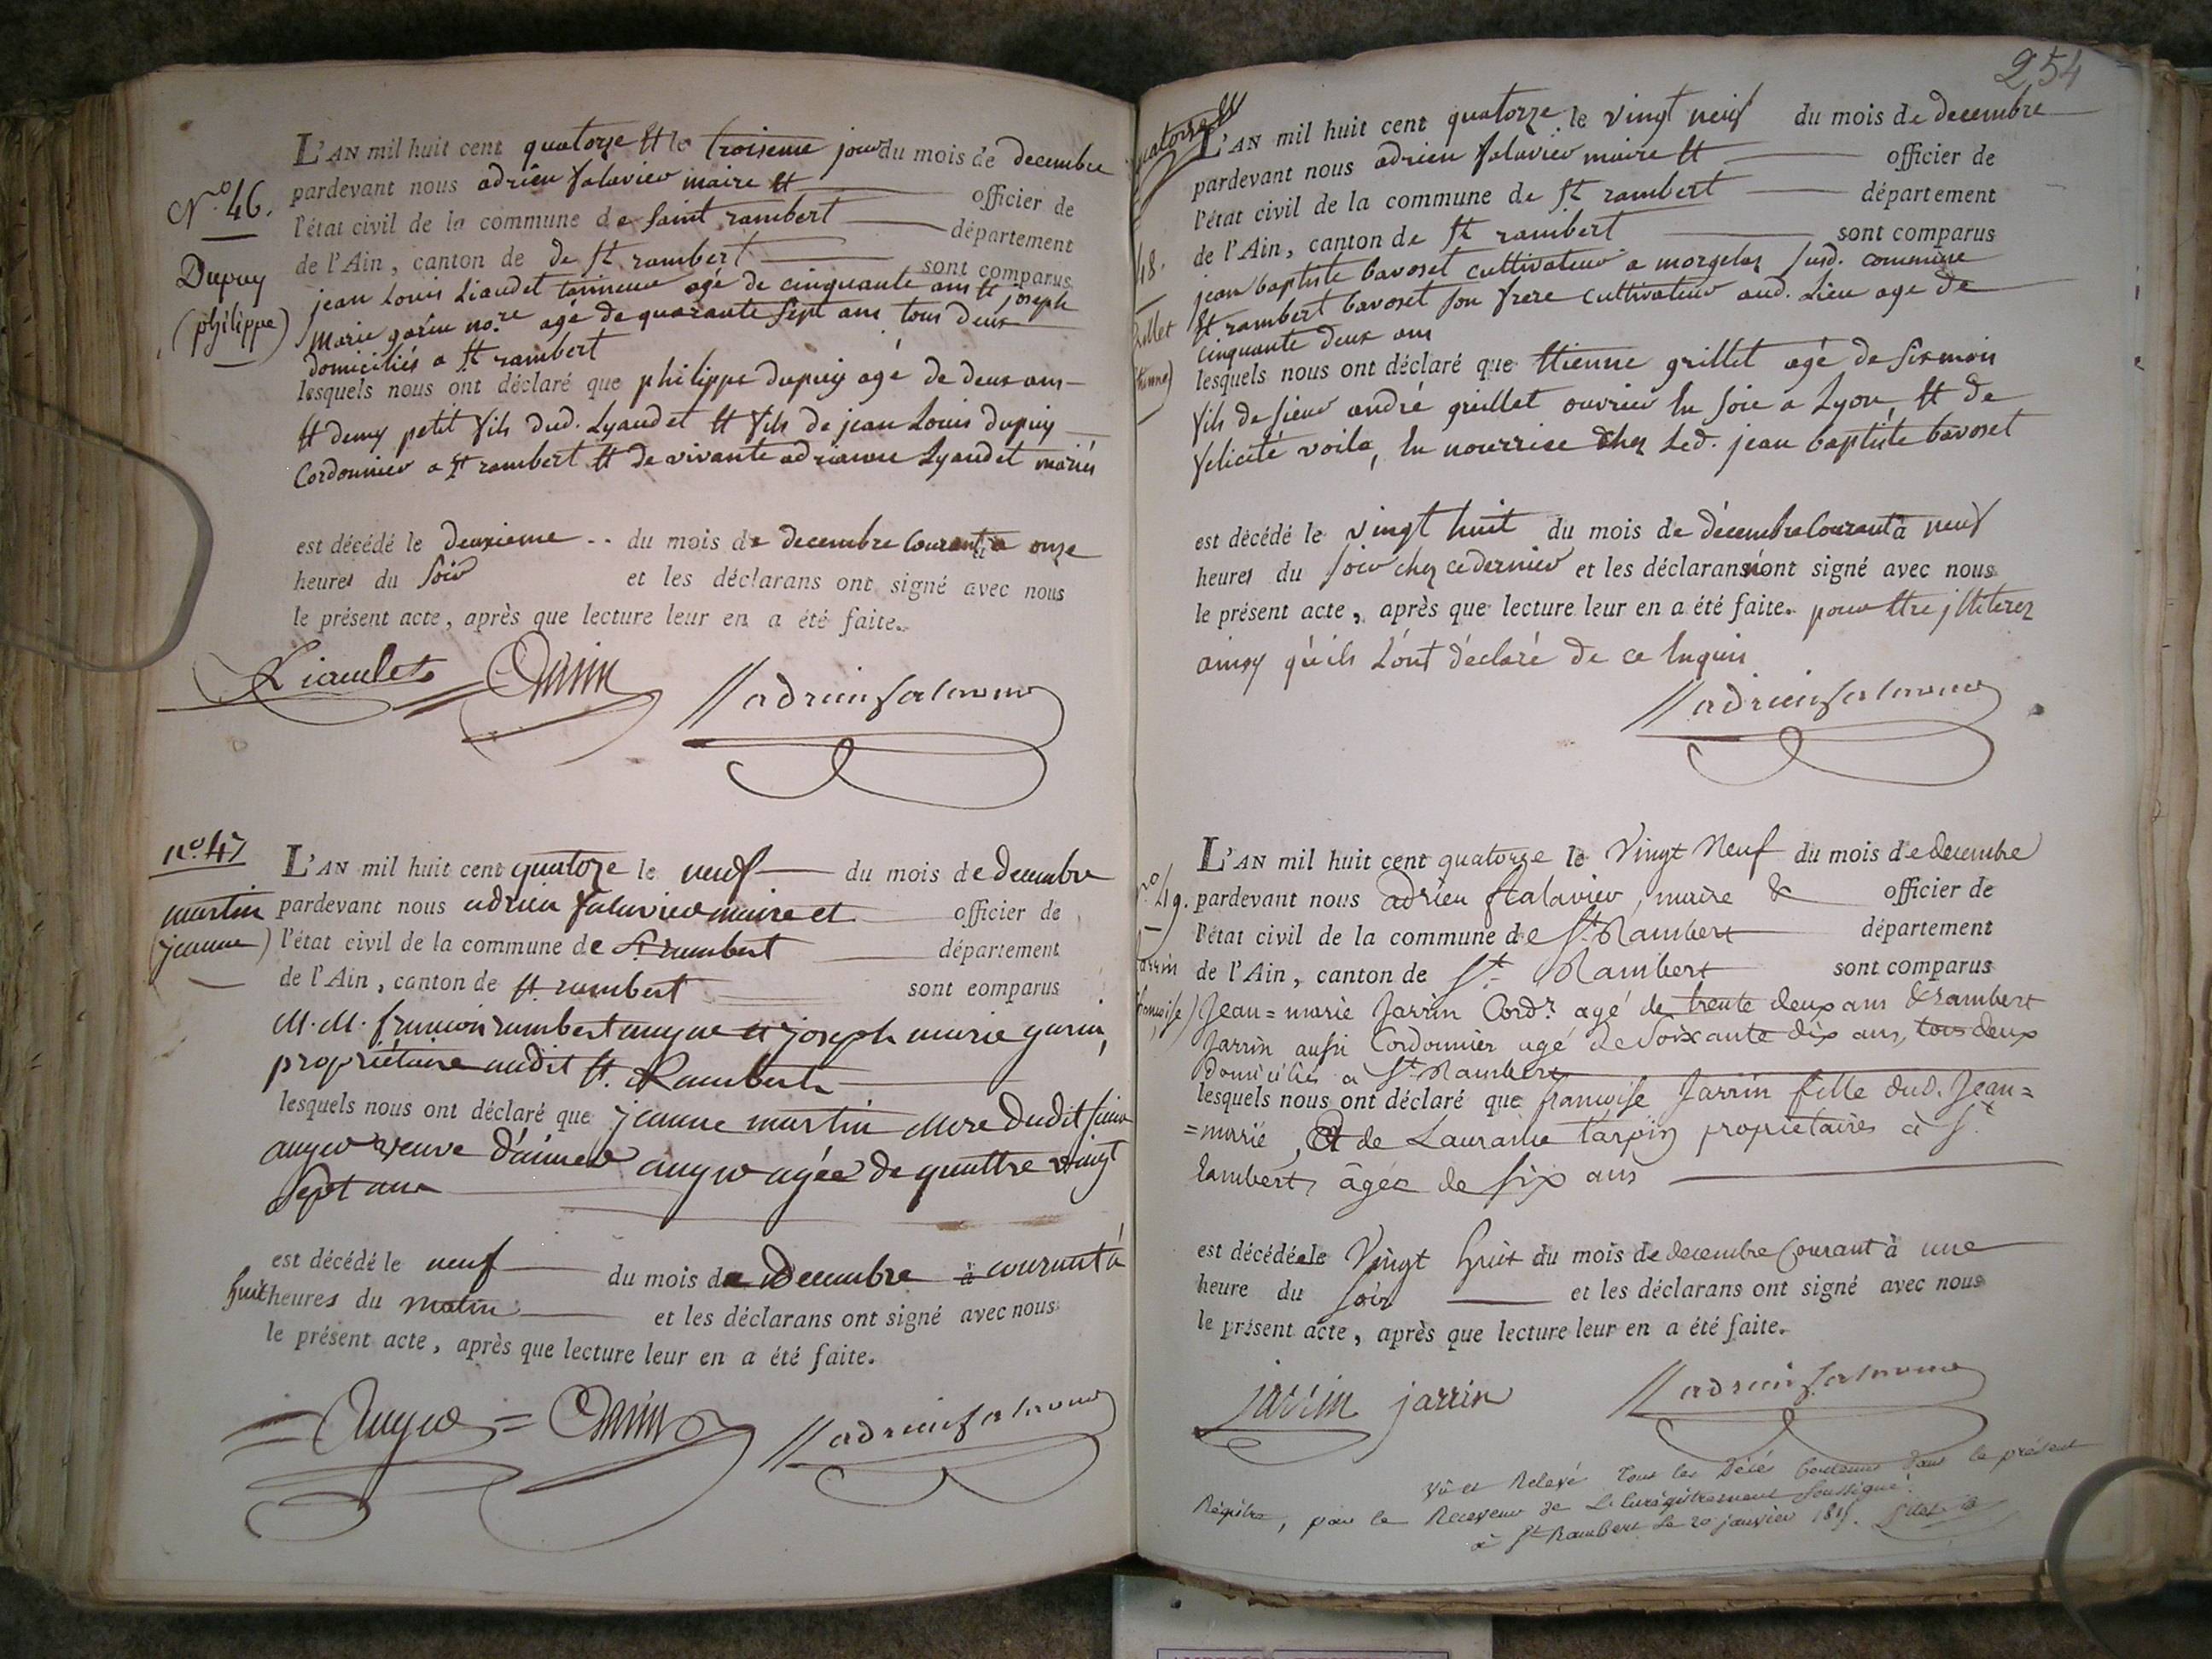 L'AN mil huit cent quatorze et le troisieme jour du mois de decembre
pardevant nous adrien falavier maire et officier de
l'état civil de la commune de saint rambert département
de l'Ain, canton de de st rambert sont comparus
jean Louis Liaudet tanneur agé de cinquante ans et joseph
marie garin no.re agé de quarante sept ans tous deux
domiciliés a st rambert
lesquels nous ont déclaré que philippe dupuy agé de deux ans
et demy petit fils dud. Lyaudet et fils de jean Louis dupuy
Cordonnier a st rambert et de vivante adrianne Lyaudet mariés
est décédé le deuxieme -- du mois de decembre Courant à onze
heures du soir et les déclarans ont signé avec nous
le présent acte, après que lecture leur en a été faite.
N.o 46.
Dupuy
(philippe)
Liaudet Garin adrien falavier
no. 47
martin
(jeanne)
L'AN mil huit cent quatorze le neuf du mois de decembre
pardevant nous adrien falavier maire et officier de
l'état civil de la commune de St. rambert département
de l'Ain, canton de st. rambert sont comparus
M. M. françois rambert auger et joseph marie garin,
propriétaire audit st. Rambert
lesquels nous ont déclaré que jeanne martin mere dudit sieur
auger veuve d'aimé auger agée de quattre vingt
sept ans
est décédé le neuf du mois de decembre à courant à
huit heures du matin et les déclarans ont signé avec nous
le présent acte, après que lecture leur en a été faite.
= Auger = Garin adrien falavier
254
quatorze
L'AN mil huit cent quatorze le vingt neuf du mois de decembre
pardevant nous adrien falavier maire et officier de
l'état civil de la commune de st rambert département
de l'Ain, canton de st rambert sont comparus
jean baptiste bavoset cultivateur a morgelas susd. commune
et rambert bavoset son frere cultivateur aud. Lieu age de
cinquante deux ans
lesquels nous ont déclaré que etienne grillet agé de six mois
fils de sieur andré grillet ouvrier en soie a Lyon, et de
felicité voila, en nourrice chez Led. jean baptiste bavoset
est décédé le vingt huit du mois de décembre Courant à neuf
heures du soir chez ce dernier et les déclarans n'ont signé avec nous
le présent acte, après que lecture leur en a été faite. pour etre illiterez
ainsy qu'ils L'ont déclaré de ce enquis
48.
adrien falavier
L'AN mil huit cent quatorze le Vingt Neuf du mois de decembre
pardevant nous adrien falavier, maire & officier de
l'état civil de la commune de St. Rambert département
de l'Ain, canton de St. Rambert sont comparus
Jean=marie Jarrin Cord.r agé de trente deux ans & rambert
Jarrin aussi Cordonnier agé de soixante dix ans, tous deux
domiciliés à St. Rambert
lesquels nous ont déclaré que françoise Jarrin fille dud. Jean=
=marie, et de Lauraine tarpin propriétaires à St.
Rambert, âgée de six ans
est décédée le Vingt huit du mois de decembre Courant à une
heure du soir et les déclarans ont signé avec nous
le présent acte, après que lecture leur en a été faite.
no. 49.
jarrin jarrin adrien falavier
Vû et Relevé Tous les Décés Contenus dans le présent
Régistre, par le Receveur de L'Enregistrement soussigné.
à St. Rambert le 20 janvier 1815.